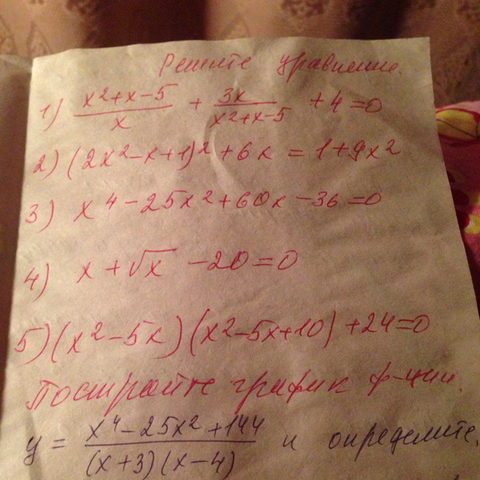 Решите уравнение.
1) \frac{x²+x-5}{x} + \frac{3x}{x²+x-5} + 4 = 0
2) (2x²-x+1)² + 6x = 1 + 9x²
3) x⁴ - 25x² + 60x - 36 = 0
4) x + √x - 20 = 0
5) (x² - 5x)(x² - 5x + 10) + 24 = 0
Постройте график ф-ции.
y = \frac{x⁴ - 25x² + 144}{(x+3)(x-4)} и определите